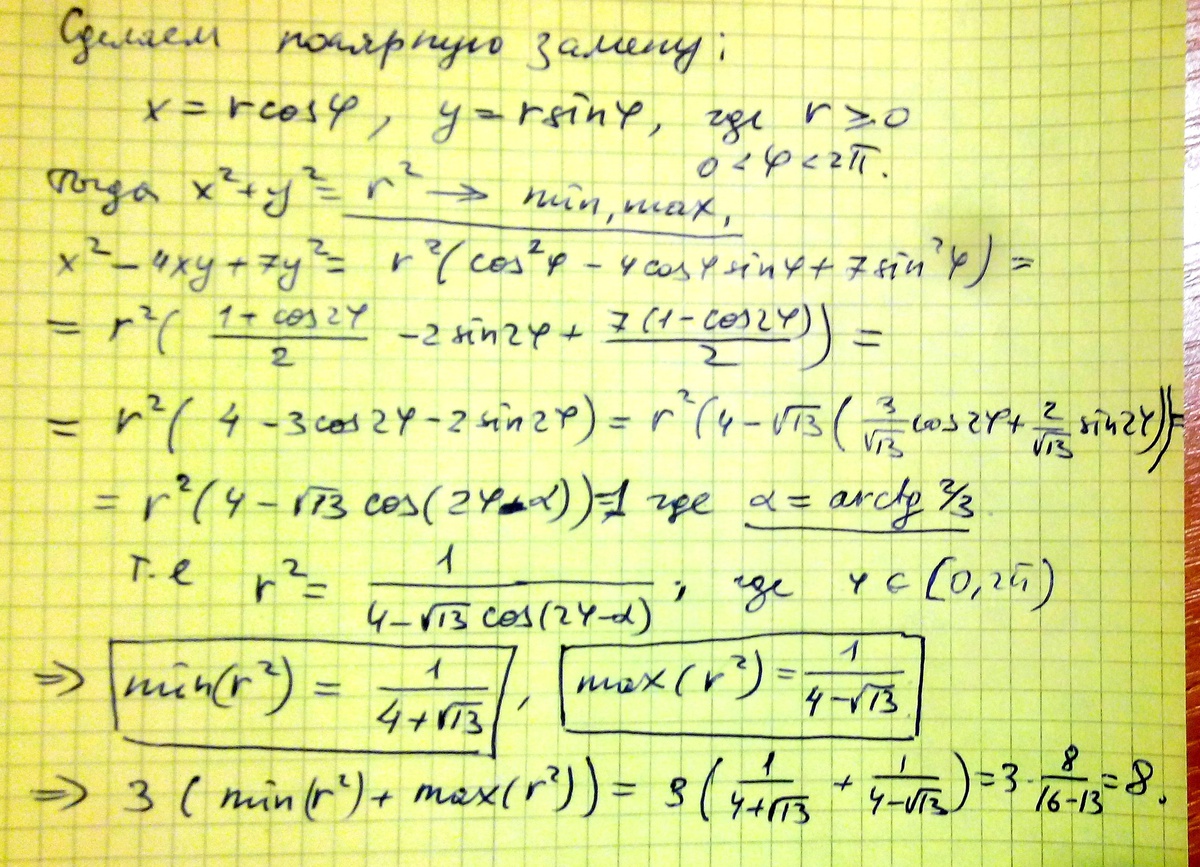 Сделаем полярную замену:
x = r cosφ, y = r sinφ, где r ≥ 0
0 < φ < 2π.
Тогда x² + y² = r² → min, max,
x² − 4xy + 7y² = r²(cos²φ − 4cosφ sinφ + 7sin²φ) =
= r²( (1 + cos2φ)/2 − 2 sin2φ + 7(1 − cos2φ)/2 ) =
= r²( 4 − 3cos2φ − 2sin2φ) = r²(4 − √13 ( 3/√13 cos2φ + 2/√13 sin2φ)) =
= r²(4 − √13 cos(2φ − α)) = 1 где α = arctg 2/3
т.е r² = 1/(4 − √13 cos(2φ − α)), где φ ∈ [0, 2π)
⇒ min(r²) = 1/(4 + √13), max(r²) = 1/(4 − √13)
⇒ 3 ( min(r²) + max(r²)) = 3 ( 1/(4 + √13) + 1/(4 − √13) ) = 3 · 8/(16 − 13) = 8.